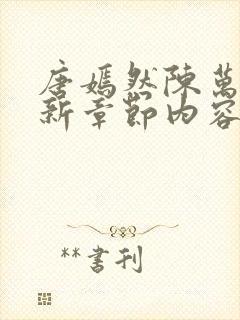 唐嫣然陳萬
新章節內容
**書刊